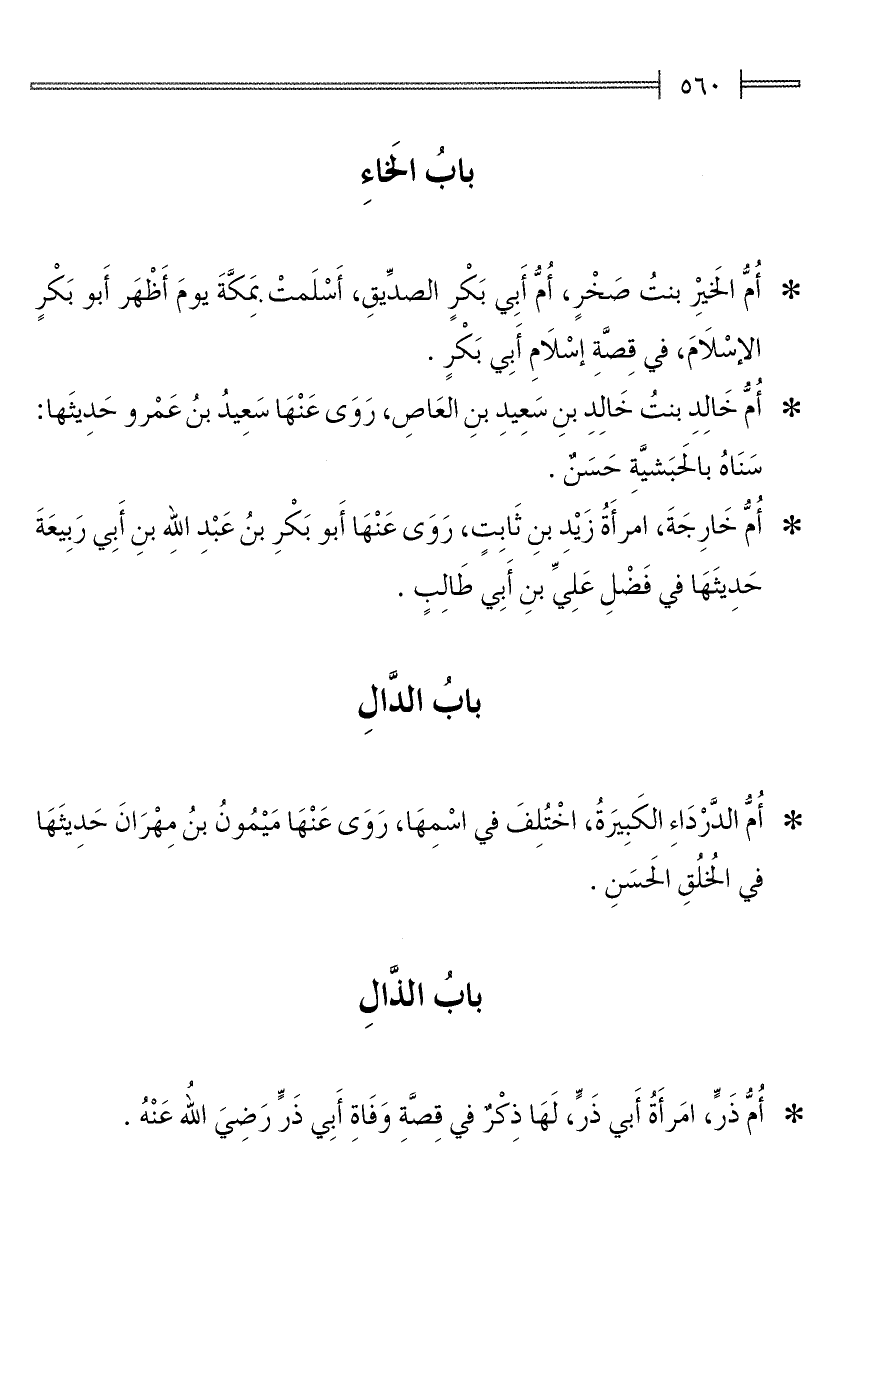 ٥٦٠
بابُ الخَاءِ
* أُمُّ الخَيرِْ بنتُ صَخْرٍ، أُمُّ أَبِي بَكْرٍ الصدِّيقِ، أَسْلَمتْ بمَكَّةَ يومَ أَظْهَر أَبو بَكْرٍ
الإسْلَامَ، في قِصَّةِ إسْلَامِ أَبِي بَكْرٍ .
* أُمُّ خَالِدِ بنتُ خَالِدِ بنِ سَعِيدِ بنِ العَاصِ، رَوَى عَنْهَا سَعِيدُ بنُ عَمْرو حَدِيثَها:
سَنَاهُ بالحَبَشيَّةِ حَسَنٌ .
* أُمُّ خَارِجَةَ، امرأَةُ زَيْدِ بنِ ثَابِتٍ، رَوَى عَنْهَا أبو بَكْرِ بنُ عَبْدِ اللهِ بنِ أَبِي رَبِيعَةَ
حَدِيثَهَا في فَضْلِ عَلِيِّ بنِ أَبِي طَالِبٍ .
بابُ الدَّالِ
* أُمُّ الدَّرْدَاءِ الكَبِيرَةُ، اخْتُلِفَ في اسْمِهَا، رَوَى عَنْهَا مَيْمُونُ بنُ مِهْرَانَ حَدِيثَهَا
في الخُلُقِ الحَسَنِ .
بابُ الذَّالِ
* أُمُّ ذَرٍّ، امَرأَةُ أَبي ذَرٍّ، لَهَا ذِكْرٌ في قِصَّةِ وَفَاةِ أَبِي ذَرٍّ رَضِيَ اللهُ عَنْهُ .